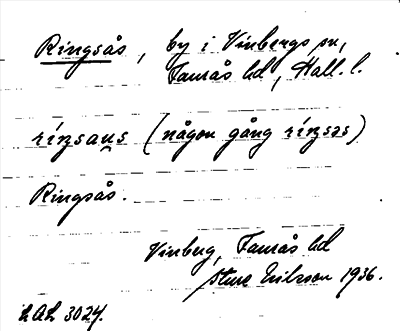 Ringsås, by i Vinbergs sn,
Faurås hd, Hall. l.
ríŋsau̯s (någon gång ríŋsəs)
Ringsås.
Vinberg, Faurås hd
Sture Erikson 1936.
LAL 3024.